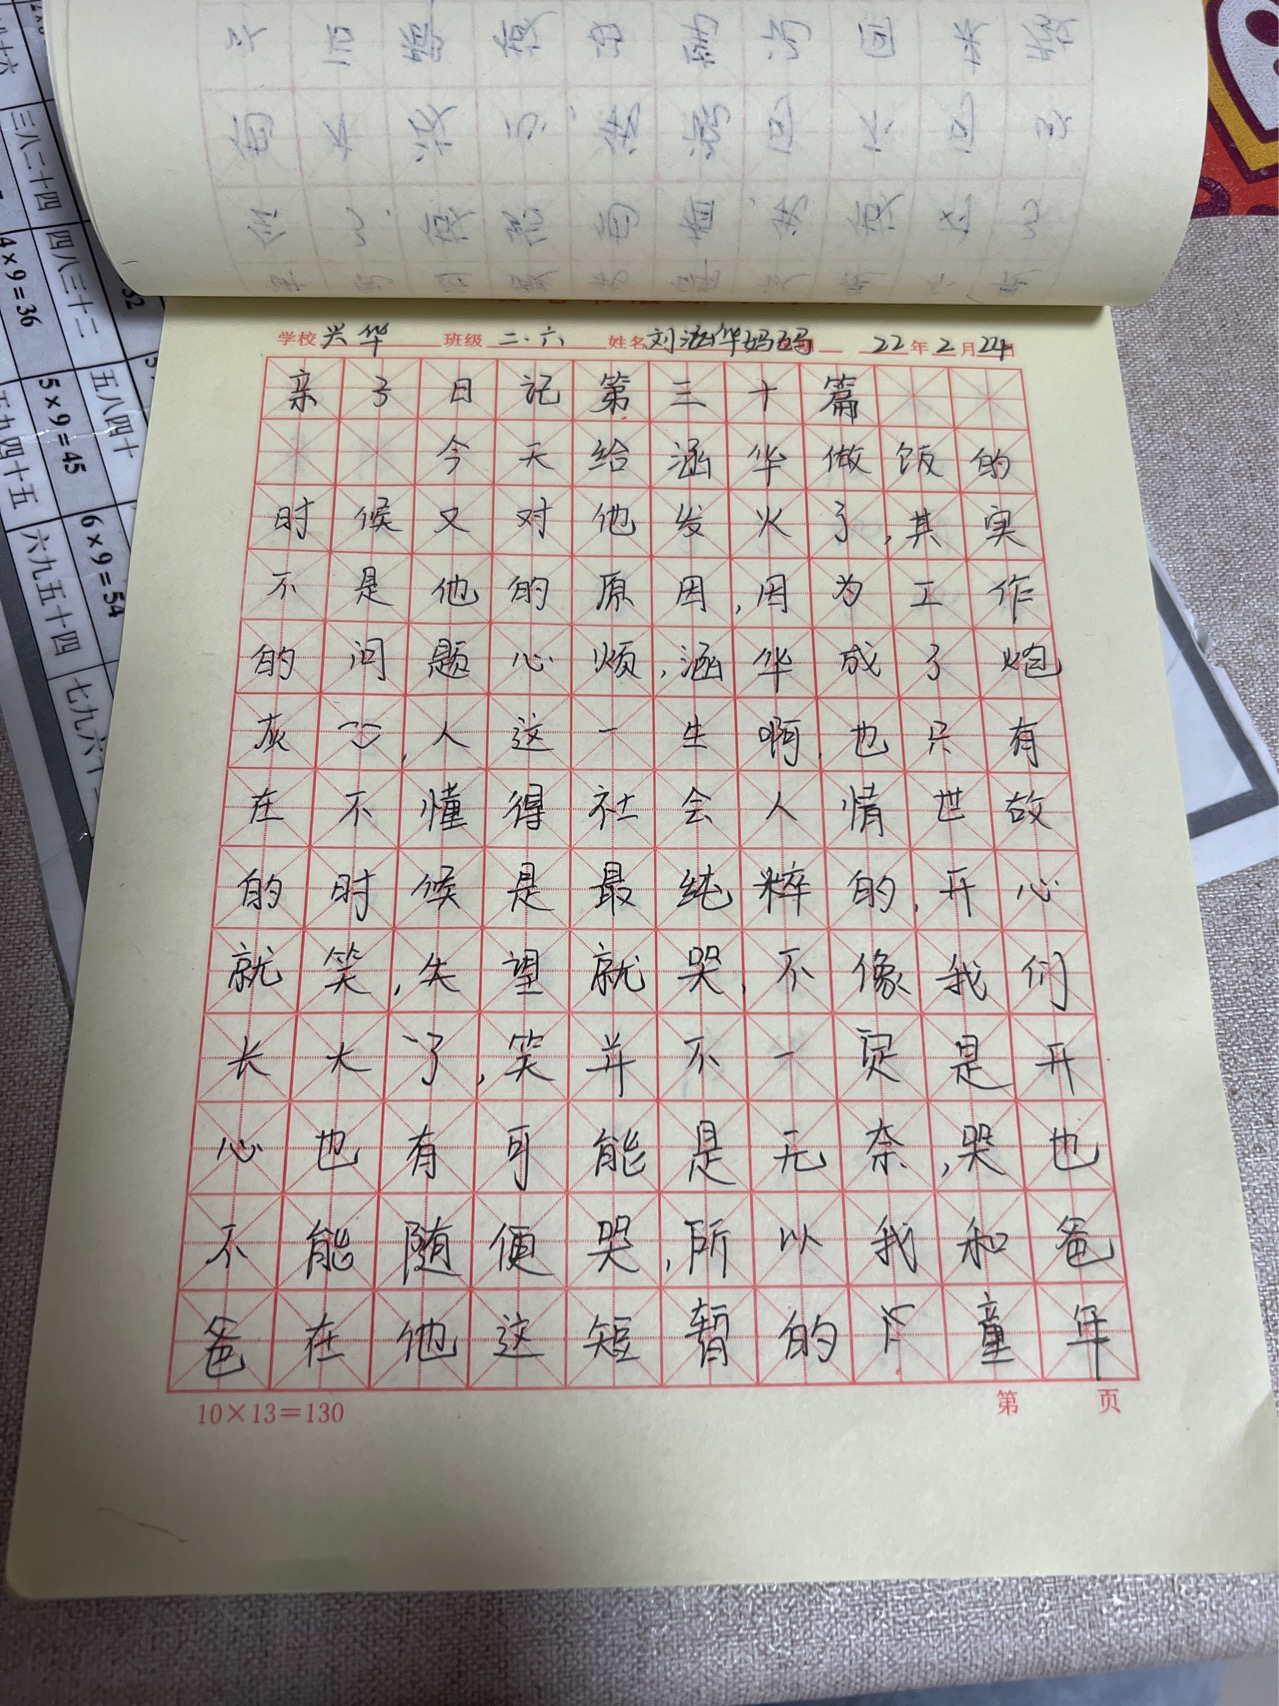 学校 兴华 班级 二.六 姓名 刘涵华妈妈 22年2月24日
亲子日记第三十篇
今天给涵华做饭的
时候又对他发火了,其实
不是他的原因,因为工作
的问题心烦,涵华成了炮
灰,人这一生啊,也只有
在不懂得社会人情世故
的时候是最纯粹的,开心
就笑,失望就哭,不像我们
长大了,笑并不一定是开
心也有可能是无奈,哭也
不能随便哭,所以我和爸
爸在他这短暂的童年
10×13=130
第 页
三八二十四
四八三十二
五八四十
4×9=36
5×9=45
6×9=54
六九五十四